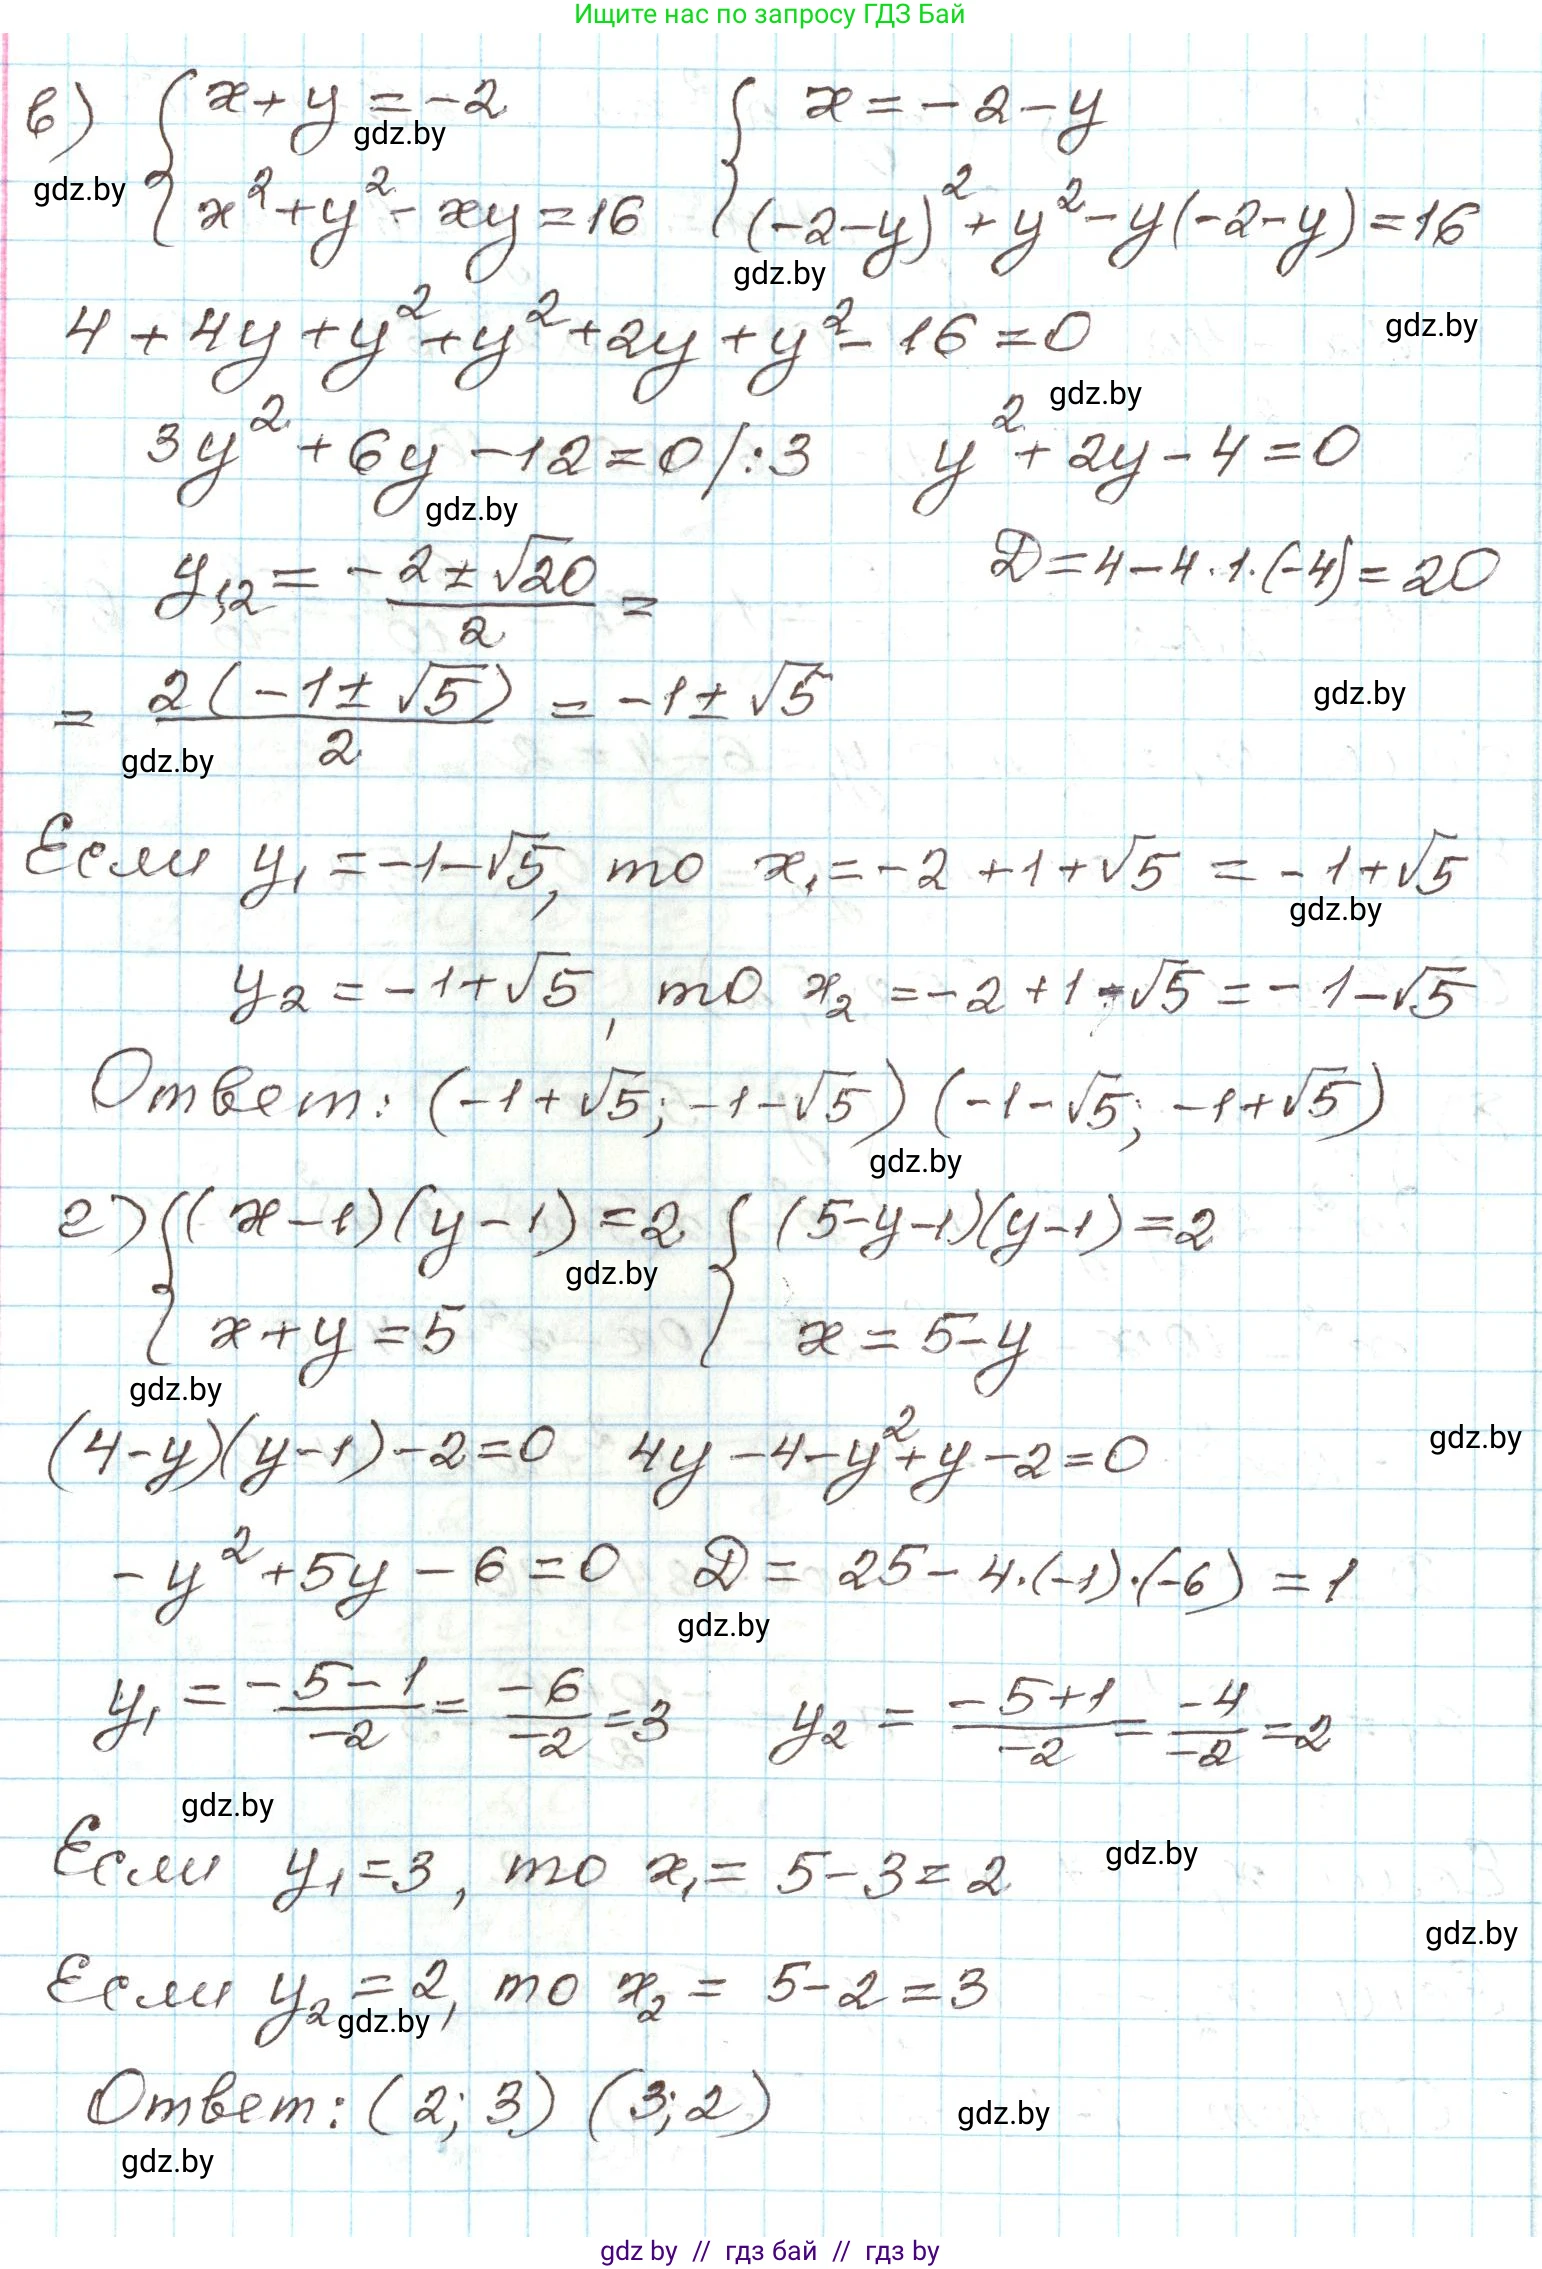 Ищите нас по запросу ГДЗ Бай
в) { x + y = -2 { x = -2 - y
gdz.by
gdz.by
x² + y² - xy = 16 (-2-y)² + y² - y(-2-y) = 16
gdz.by
4 + 4y + y² + y² + 2y + y² - 16 = 0
gdz.by
gdz.by
3y² + 6y - 12 = 0 /:3 y² + 2y - 4 = 0
gdz.by
y₁,₂ = (-2 ± √20)/2 = D = 4 - 4·1·(-4) = 20
= 2(-1 ± √5)/2 = -1 ± √5
gdz.by
gdz.by
Если y₁ = -1-√5, то x₁ = -2 + 1 + √5 = -1 + √5
gdz.by
y₂ = -1+√5, то x₂ = -2 + 1 - √5 = -1 - √5
Ответ: (-1+√5; -1-√5) (-1-√5; -1+√5)
gdz.by
г) { (x-1)(y-1) = 2 { (5-y-1)(y-1) = 2
gdz.by
x + y = 5 x = 5-y
gdz.by
(4-y)(y-1) - 2 = 0 4y - 4 - y² + y - 2 = 0
gdz.by
-y² + 5y - 6 = 0 D = 25 - 4·(-1)·(-6) = 1
gdz.by
y₁ = (-5-1)/-2 = -6/-2 = 3 y₂ = (-5+1)/-2 = -4/-2 = 2
gdz.by
Если y₁ = 3, то x₁ = 5-3 = 2
gdz.by
gdz.by
Если y₂ = 2, то x₂ = 5-2 = 3
gdz.by
Ответ: (2; 3) (3; 2)
gdz.by
gdz.by
gdz by // гдз бай // гдз by